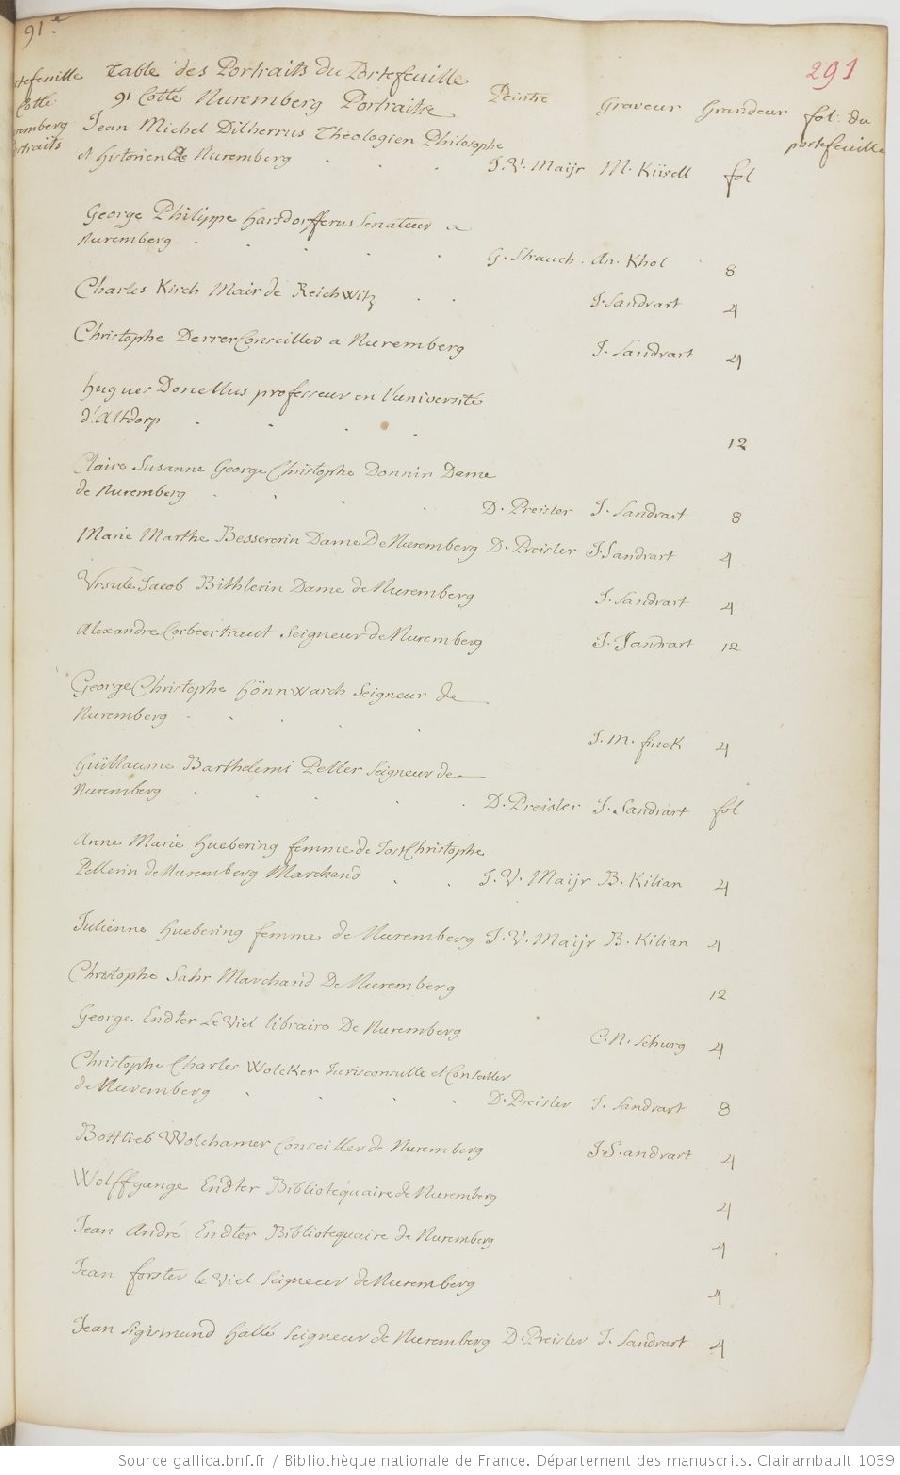 91.e
291
Table des Portraits du Portefeuille
91 Cotté Nuremberg Portraits
Peintre Graveur Grandeur fol. du portefeuille
Jean Michel Dilherrus Theologien Philosophe
et historien de Nuremberg J. V. Maijr M. Küsell fol
George Philippe harsdorfferus Senateur a
Nuremberg G. Strauch. An. Khol 8
Charles Kirch Mair de Reichwitz J. Sandrart 4
Christophe Derrer Conseiller a Nuremberg J. Sandrart 4
hugues Donellus professeur en l'université
d'Altdorp 12
Claire Susanne George Christophe Donnir Dame
de Nuremberg D. Preisler J. Sandrart 8
Marie Marthe Bessererin Dame De Nuremberg D. Preisler J. Sandrart 4
Vrsule Jacob Bithlerin Dame de Nuremberg J. Sandrart 4
Alexandre Seigneur de Nuremberg J. Sandrart 12
George Christophe hönnwarch Seigneur de
Nuremberg J. M. fueck 4
Guillaume Barthelemi Peller Seigneur de
Nuremberg D. Preisler J. Sandrart fol
Anne Marie huebering femme de Jost Christophe
Pellerin de Nuremberg Marchand J. V. Maijr B. Kilian 4
Julienne huebering femme de Nuremberg J. V. Maijr B. Kilian 4
Christophe Sahr Marchand De Nuremberg 12
George Endter Le Viel libraire De Nuremberg C. N. Schurg 4
Christophe Charles Wolcker Jurisconsulte et Conseiller
de Nuremberg D. Preisler J. Sandrart 8
Bottlieb Wolchamer Conseiller de Nuremberg J. Sandrart 4
Wolffgange Endter Bibliotequaire de Nuremberg 4
Jean André Endter Bibliotequaire de Nuremberg 4
Jean forster le Viel Seigneur de Nuremberg 4
Jean Sigismund hallé Seigneur de Nuremberg D. Preisler J. Sandrart 4
Source gallica.bnf.fr / Bibliothèque nationale de France. Département des manuscrits. Clairambault 1039